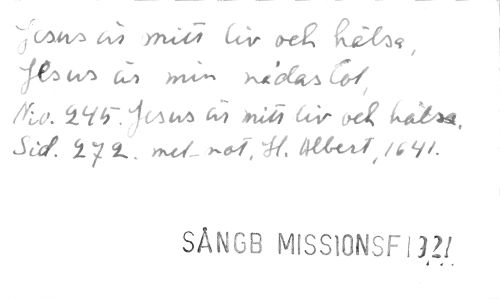 Jesus är mitt liv och hälsa,
Jesus är min nådas Col,
N:o. 245. Jesus är mitt liv och hälsa.
Sid. 272. mel. not, H. Albert, 1641.
SÅNGB MISSIONSF 1921